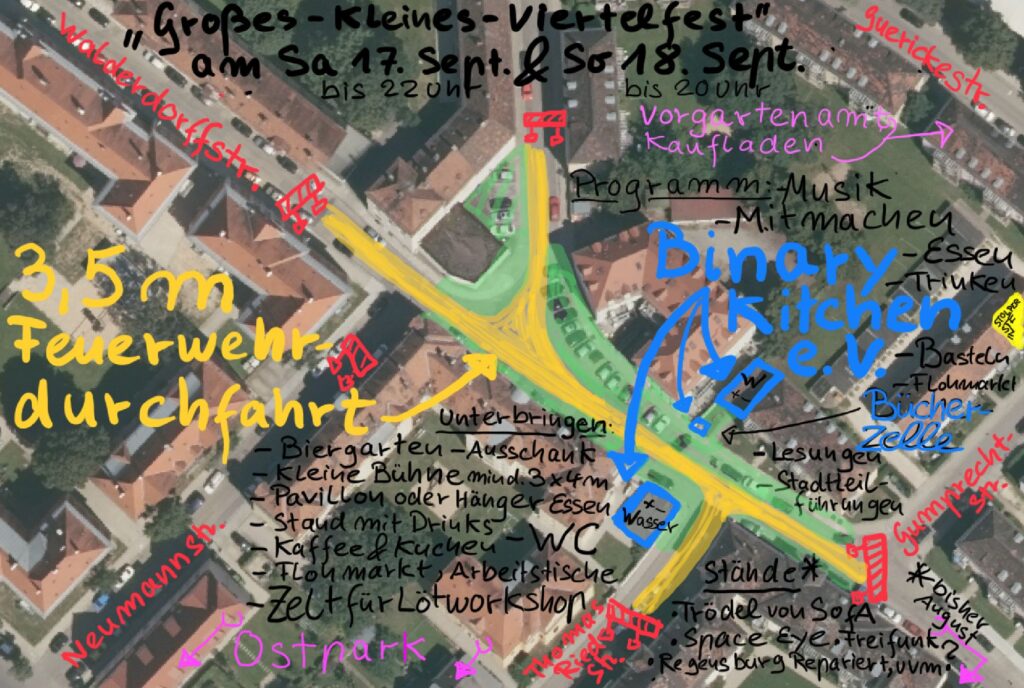 „Großes-Kleines-Viertelfest"
am Sa 17. Sept. & So 18. Sept.
bis 22 Uhr bis 20 Uhr
Guerickestr.
Watderdorffstr.
Vorgartenamt
Kaufladen
Programm: -Musik
- Mitmachen
- Essen
- Trinken
Binary
Kitchen
e.V.
- Basteln
- Flohmarkt
Bücher-
Zelle
- Lesungen
- Stadtteil-
führungen
3,5 m
Feuerwehr-
durchfahrt
Unterbringen:
- Biergarten - Ausschank
- Kleine Bühne mind. 3x4m
- Pavillon oder Hänger Essen
- Stand mit Drinks
- Kaffee & Kuchen - WC
- Flohmarkt, Arbeitstische
- Zelt für Lötworkshop
W
+-
+-
Wasser
Gumprecht-
str.
Neumannstr.
Ostpark
Thomas
Rieder
str.
Stände*
· Trödel von SofA
· Space Eye · Freifunk?
· Regensburg Repariert, uvm.
*bisher
August